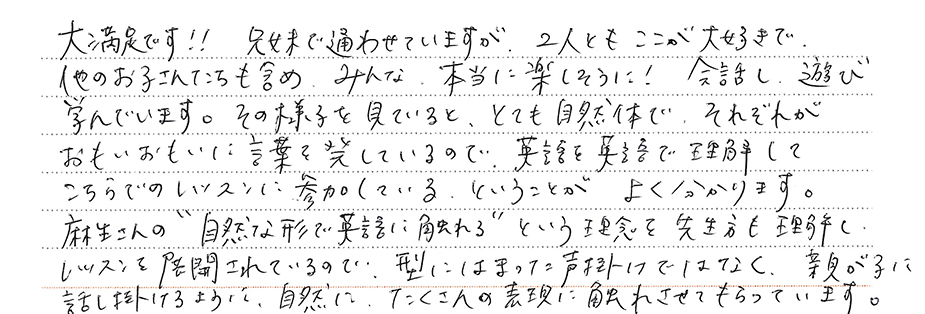 大満足です!! 兄妹で通わせていますが、2人ともここが大好きで、
他のお子さんたちも含め、みんな、本当に楽しそうに! 会話し、遊び
学んでいます。その様子を見ていると、とても自然体で、それぞれが
おもいおもいに言葉を発しているので、英語を英語で理解して
こちらでのレッスンに参加している、ということが よく分かります。
麻生さんの"自然な形で英語に触れる"という理念を先生方も理解し、
レッスンを展開されているので、型にはまった声掛けではなく、親が子に
話し掛けるように、自然に、たくさんの表現に触れさせてもらっています。